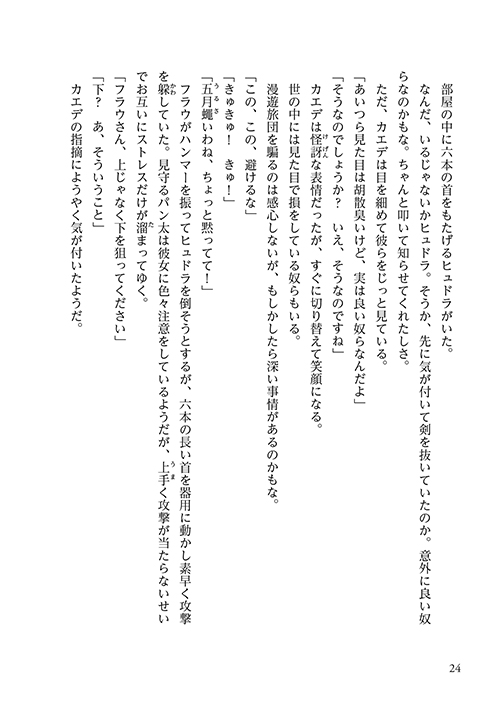 部屋の中に六本の首をもたげるヒュドラがいた。
なんだ、いるじゃないかヒュドラ。そうか、先に気が付いて剣を抜いていたのか。意外に良い奴
らなのかもな。ちゃんと叩いて知らせてくれたしさ。
ただ、カエデは目を細めて彼らをじっと見ている。
「あいつら見た目は胡散臭いけど、実は良い奴らなんだよ」
「そうなのでしょうか？　いえ、そうなのですね」
カエデは怪訝な表情だったが、すぐに切り替えて笑顔になる。
世の中には見た目で損をしている奴らもいる。
漫遊旅団を騙るのは感心しないが、もしかしたら深い事情があるのかもな。
「この、この、避けるな」
「きゅきゅ！　きゅ！」
「五月蠅いわね、ちょっと黙ってて！」
フラウがハンマーを振ってヒュドラを倒そうとするが、六本の長い首を器用に動かし素早く攻撃
を躱していた。見守るパン太は彼女に色々注意をしているようだが、上手く攻撃が当たらないせい
でお互いにストレスだけが溜まってゆく。
「フラウさん、上じゃなく下を狙ってください」
「下？　あ、そういうこと」
カエデの指摘にようやく気が付いたようだ。
24